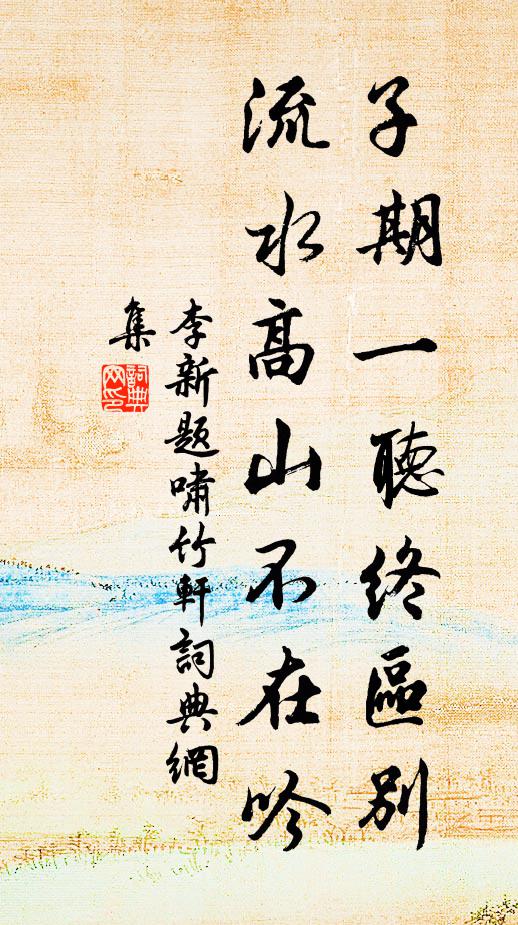 子期一聽終區別
流水高山不在吟
李新題嘯竹軒詞典網
集
詞典
网印